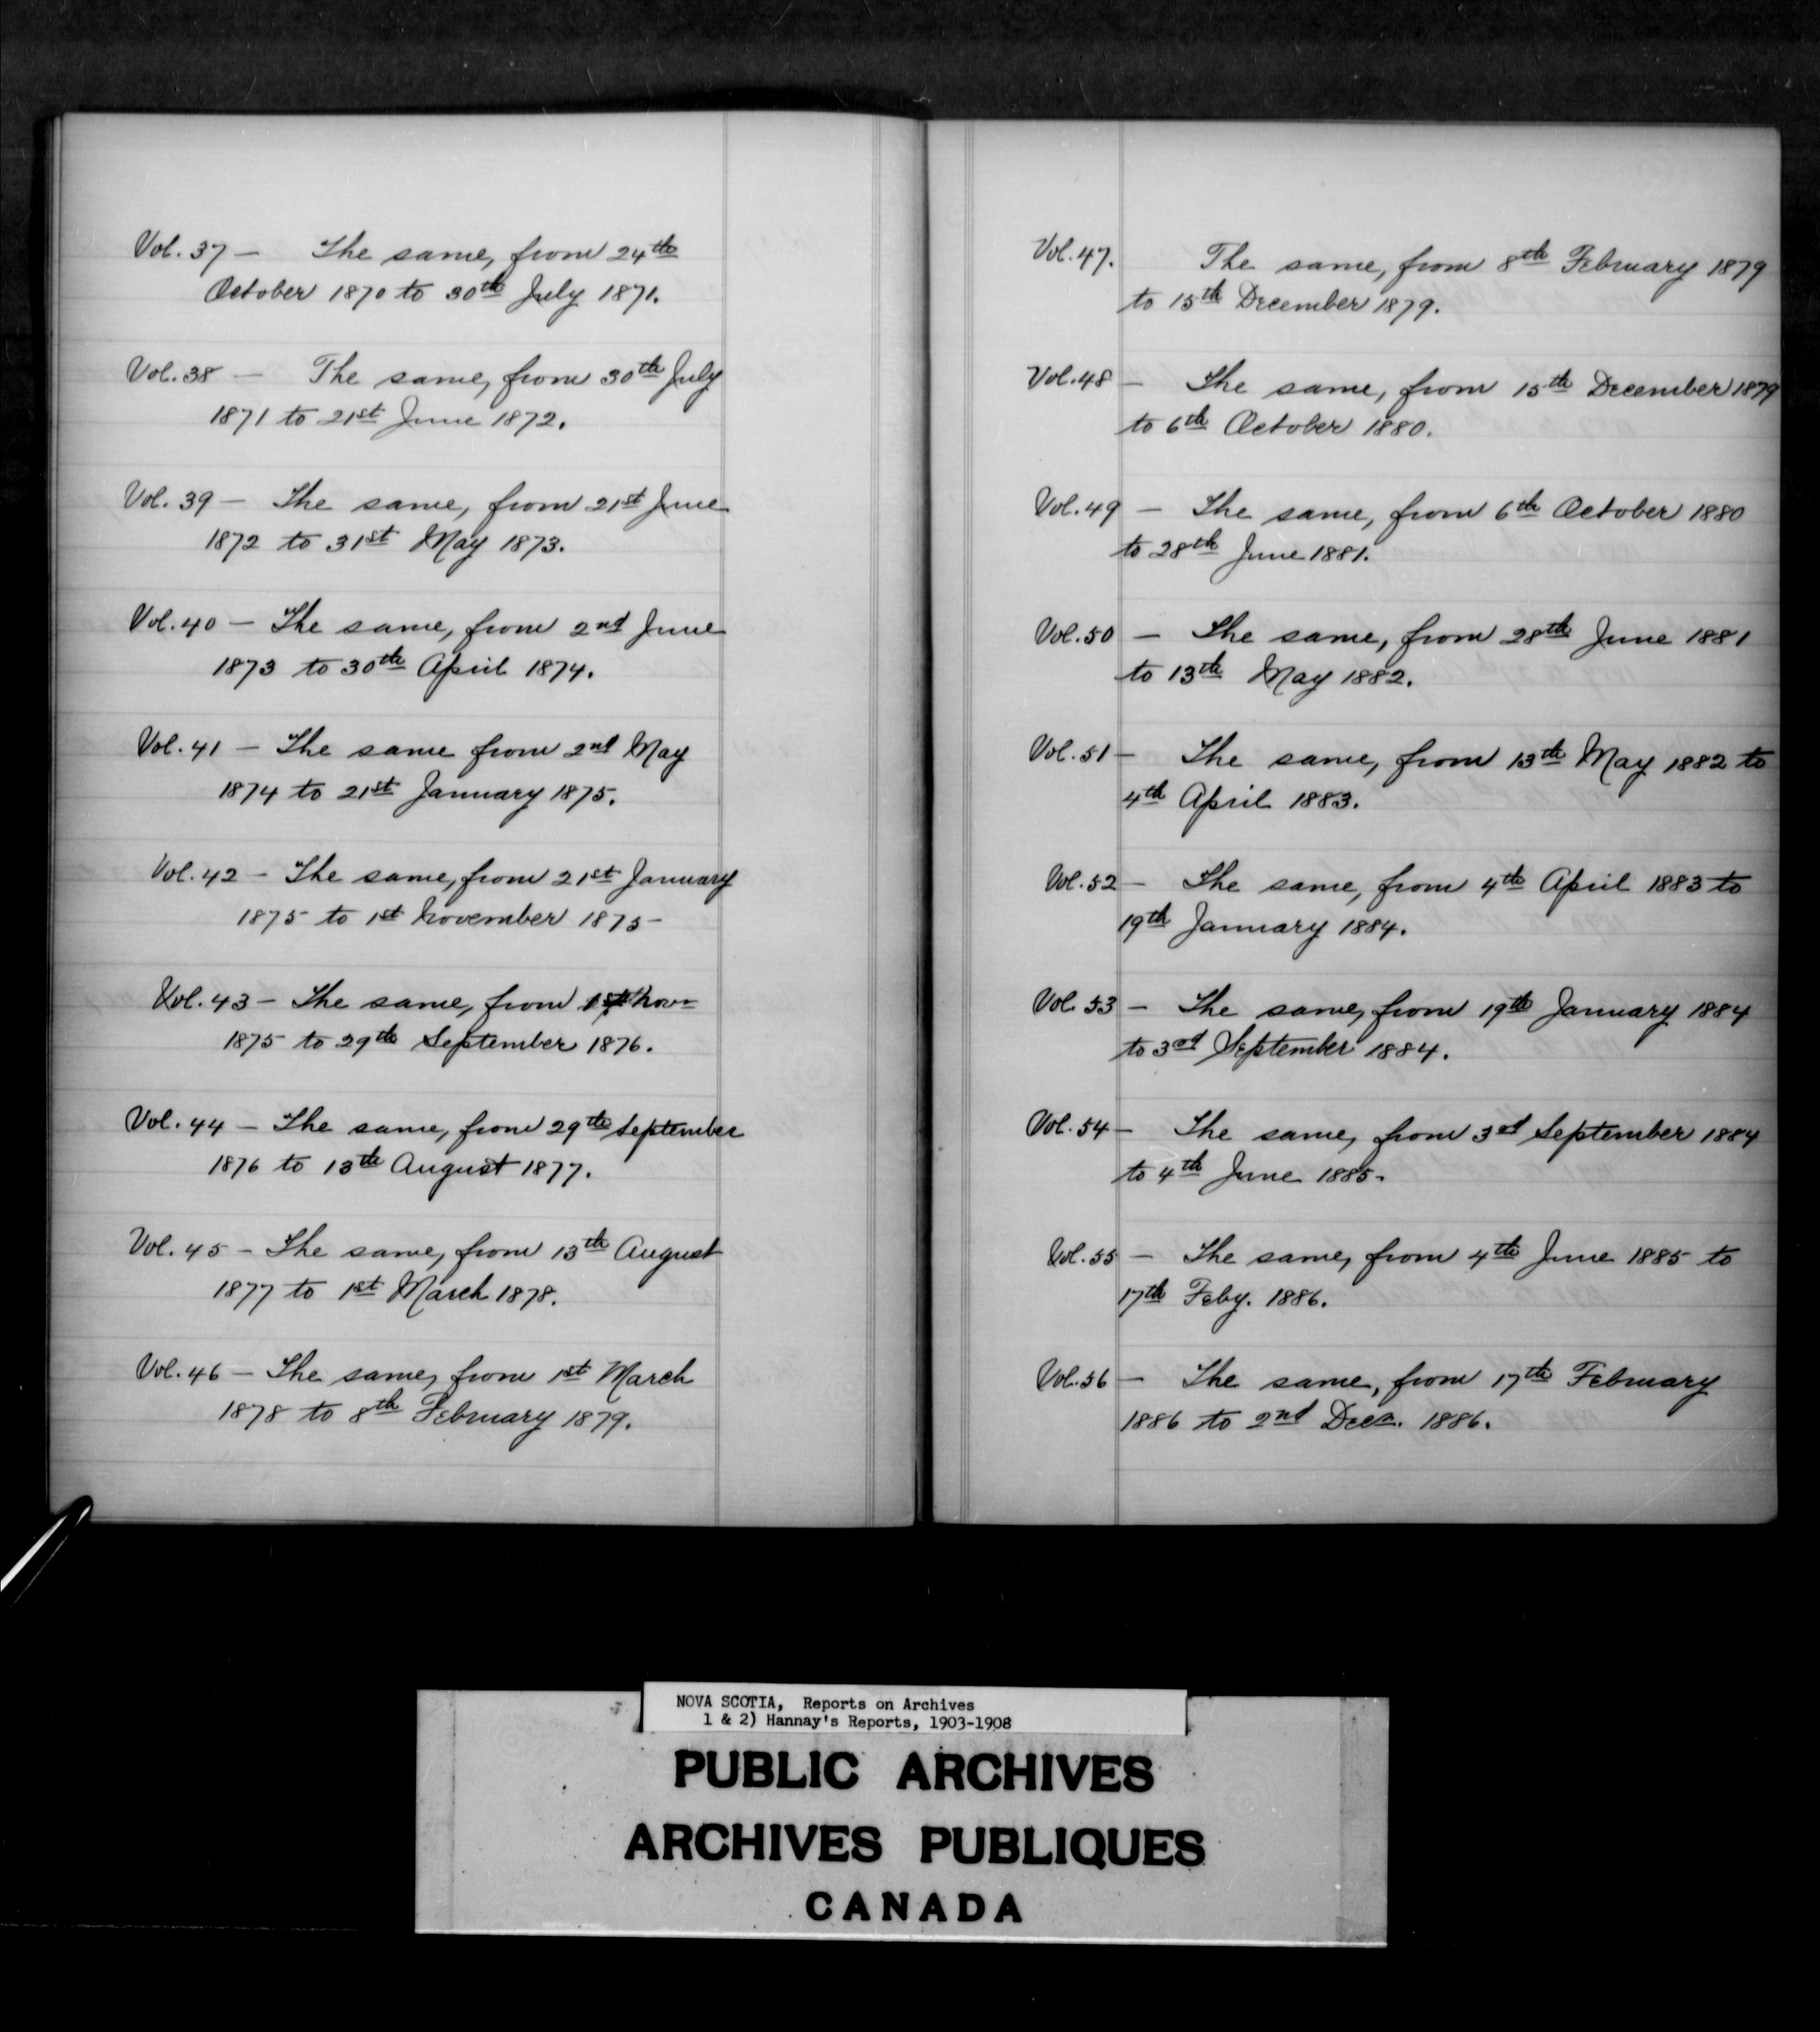 Vol. 37 — The same, from 24th
October 1870 to 30th July 1871.
Vol. 38 — The same, from 30th July
1871 to 21st June 1872.
Vol. 39 — The same, from 21st June
1872 to 31st May 1873.
Vol. 40 — The same, from 2nd June
1873 to 30th April 1874.
Vol. 41 — The same from 2nd May
1874 to 21st January 1875.
Vol. 42 — The same, from 21st January
1875 to 1st November 1875
Vol. 43 — The same, from 1st Nov
1875 to 29th September 1876.
Vol. 44 — The same, from 29th September
1876 to 13th August 1877.
Vol. 45 — The same, from 13th August
1877 to 1st March 1878.
Vol. 46 — The same, from 1st March
1878 to 8th February 1879.
Vol. 47. The same, from 8th February 1879
to 15th December 1879.
Vol. 48 — The same, from 15th December 1879
to 6th October 1880.
Vol. 49 — The same, from 6th October 1880
to 28th June 1881.
Vol. 50 — The same, from 28th June 1881
to 13th May 1882.
Vol. 51 — The same, from 13th May 1882 to
4th April 1883.
Vol. 52 — The same, from 4th April 1883 to
19th January 1884.
Vol. 53 — The same, from 19th January 1884
to 3rd September 1884.
Vol. 54 — The same, from 3rd September 1884
to 4th June 1885.
Vol. 55 — The same, from 4th June 1885 to
17th Feby. 1886.
Vol. 56 — The same, from 17th February
1886 to 2nd Decr. 1886.
NOVA SCOTIA, Reports on Archives
1 & 2) Hannay's Reports, 1903-1908
PUBLIC ARCHIVES
ARCHIVES PUBLIQUES
CANADA